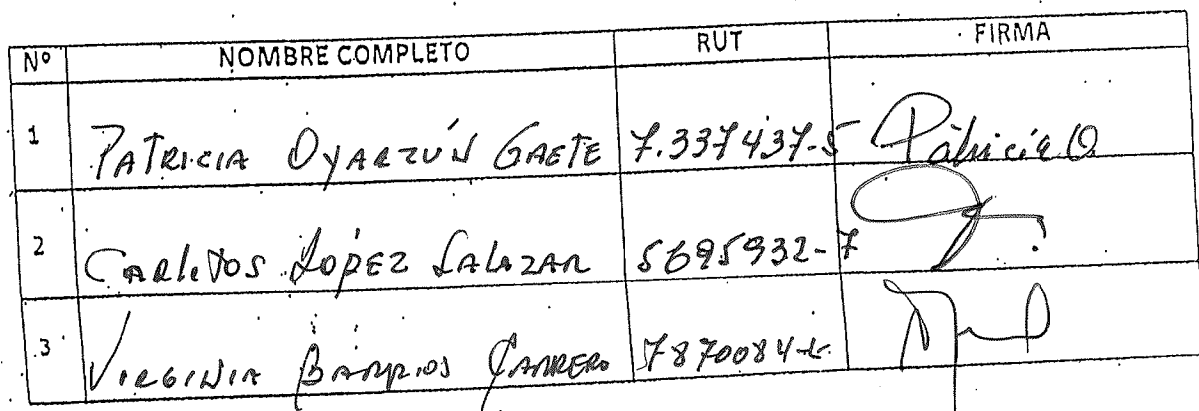 Nº NOMBRE COMPLETO RUT FIRMA
1 PATRICIA OYARZÚN GAETE 7.337437-5 Patricia O.
2 CARLITOS LÓPEZ SALAZAR 5695932-7
3 VIRGINIA BARRIOS CARRERO 7870084-k